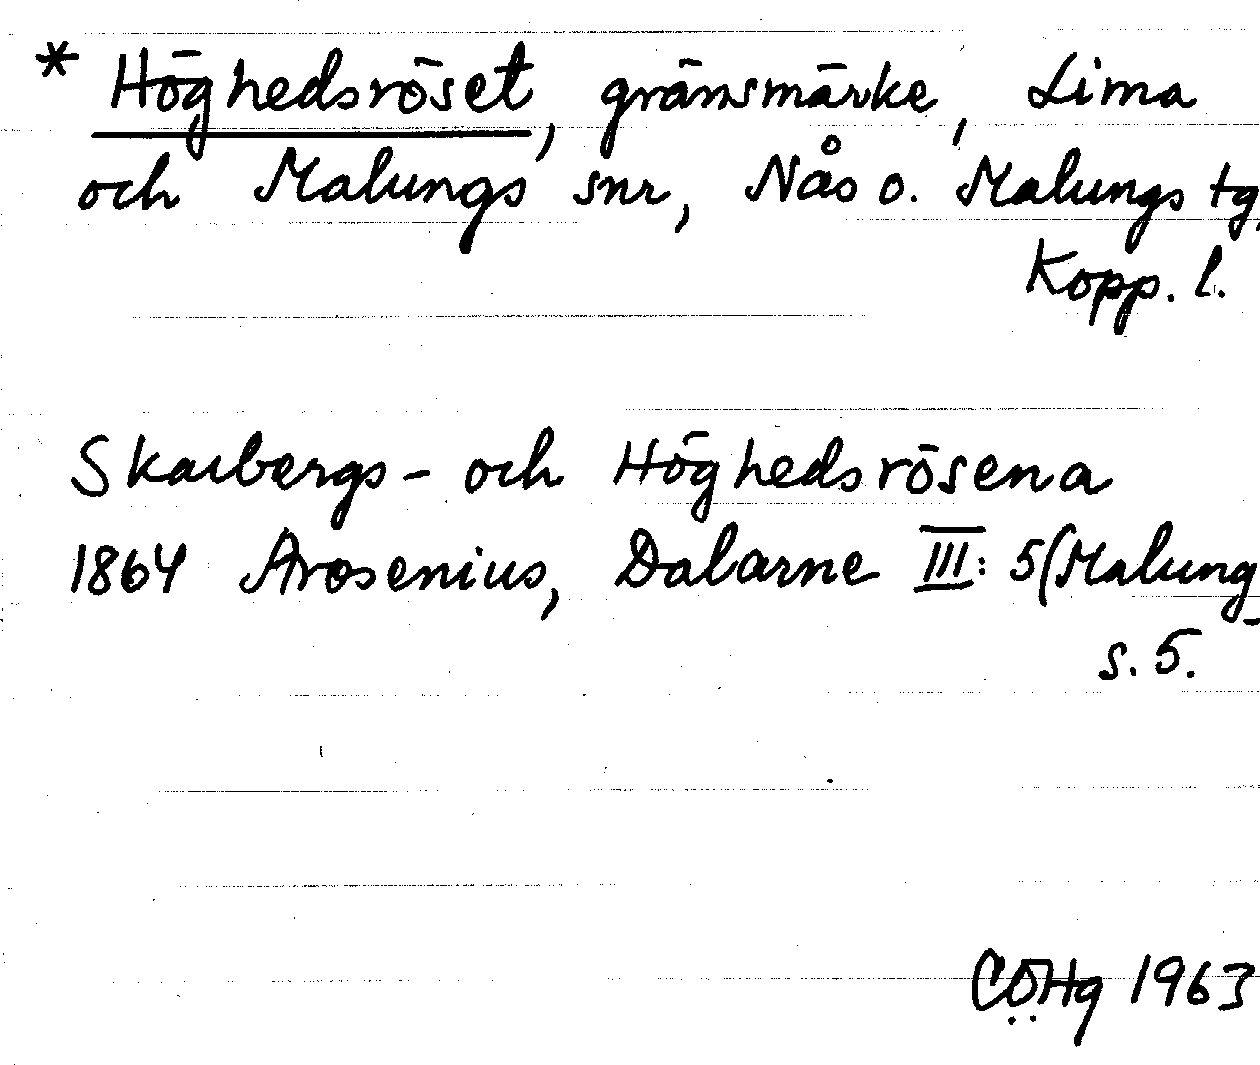 * Höghedsröset, gränsmärke, Lima
och Malungs snr, Nås o. Malungs tg,
Kopp. l.
Skarbergs- och Höghedsrösena
1864 Arosenius, Dalarne III: 5 (Malung
s. 5.
CÖHg 1963